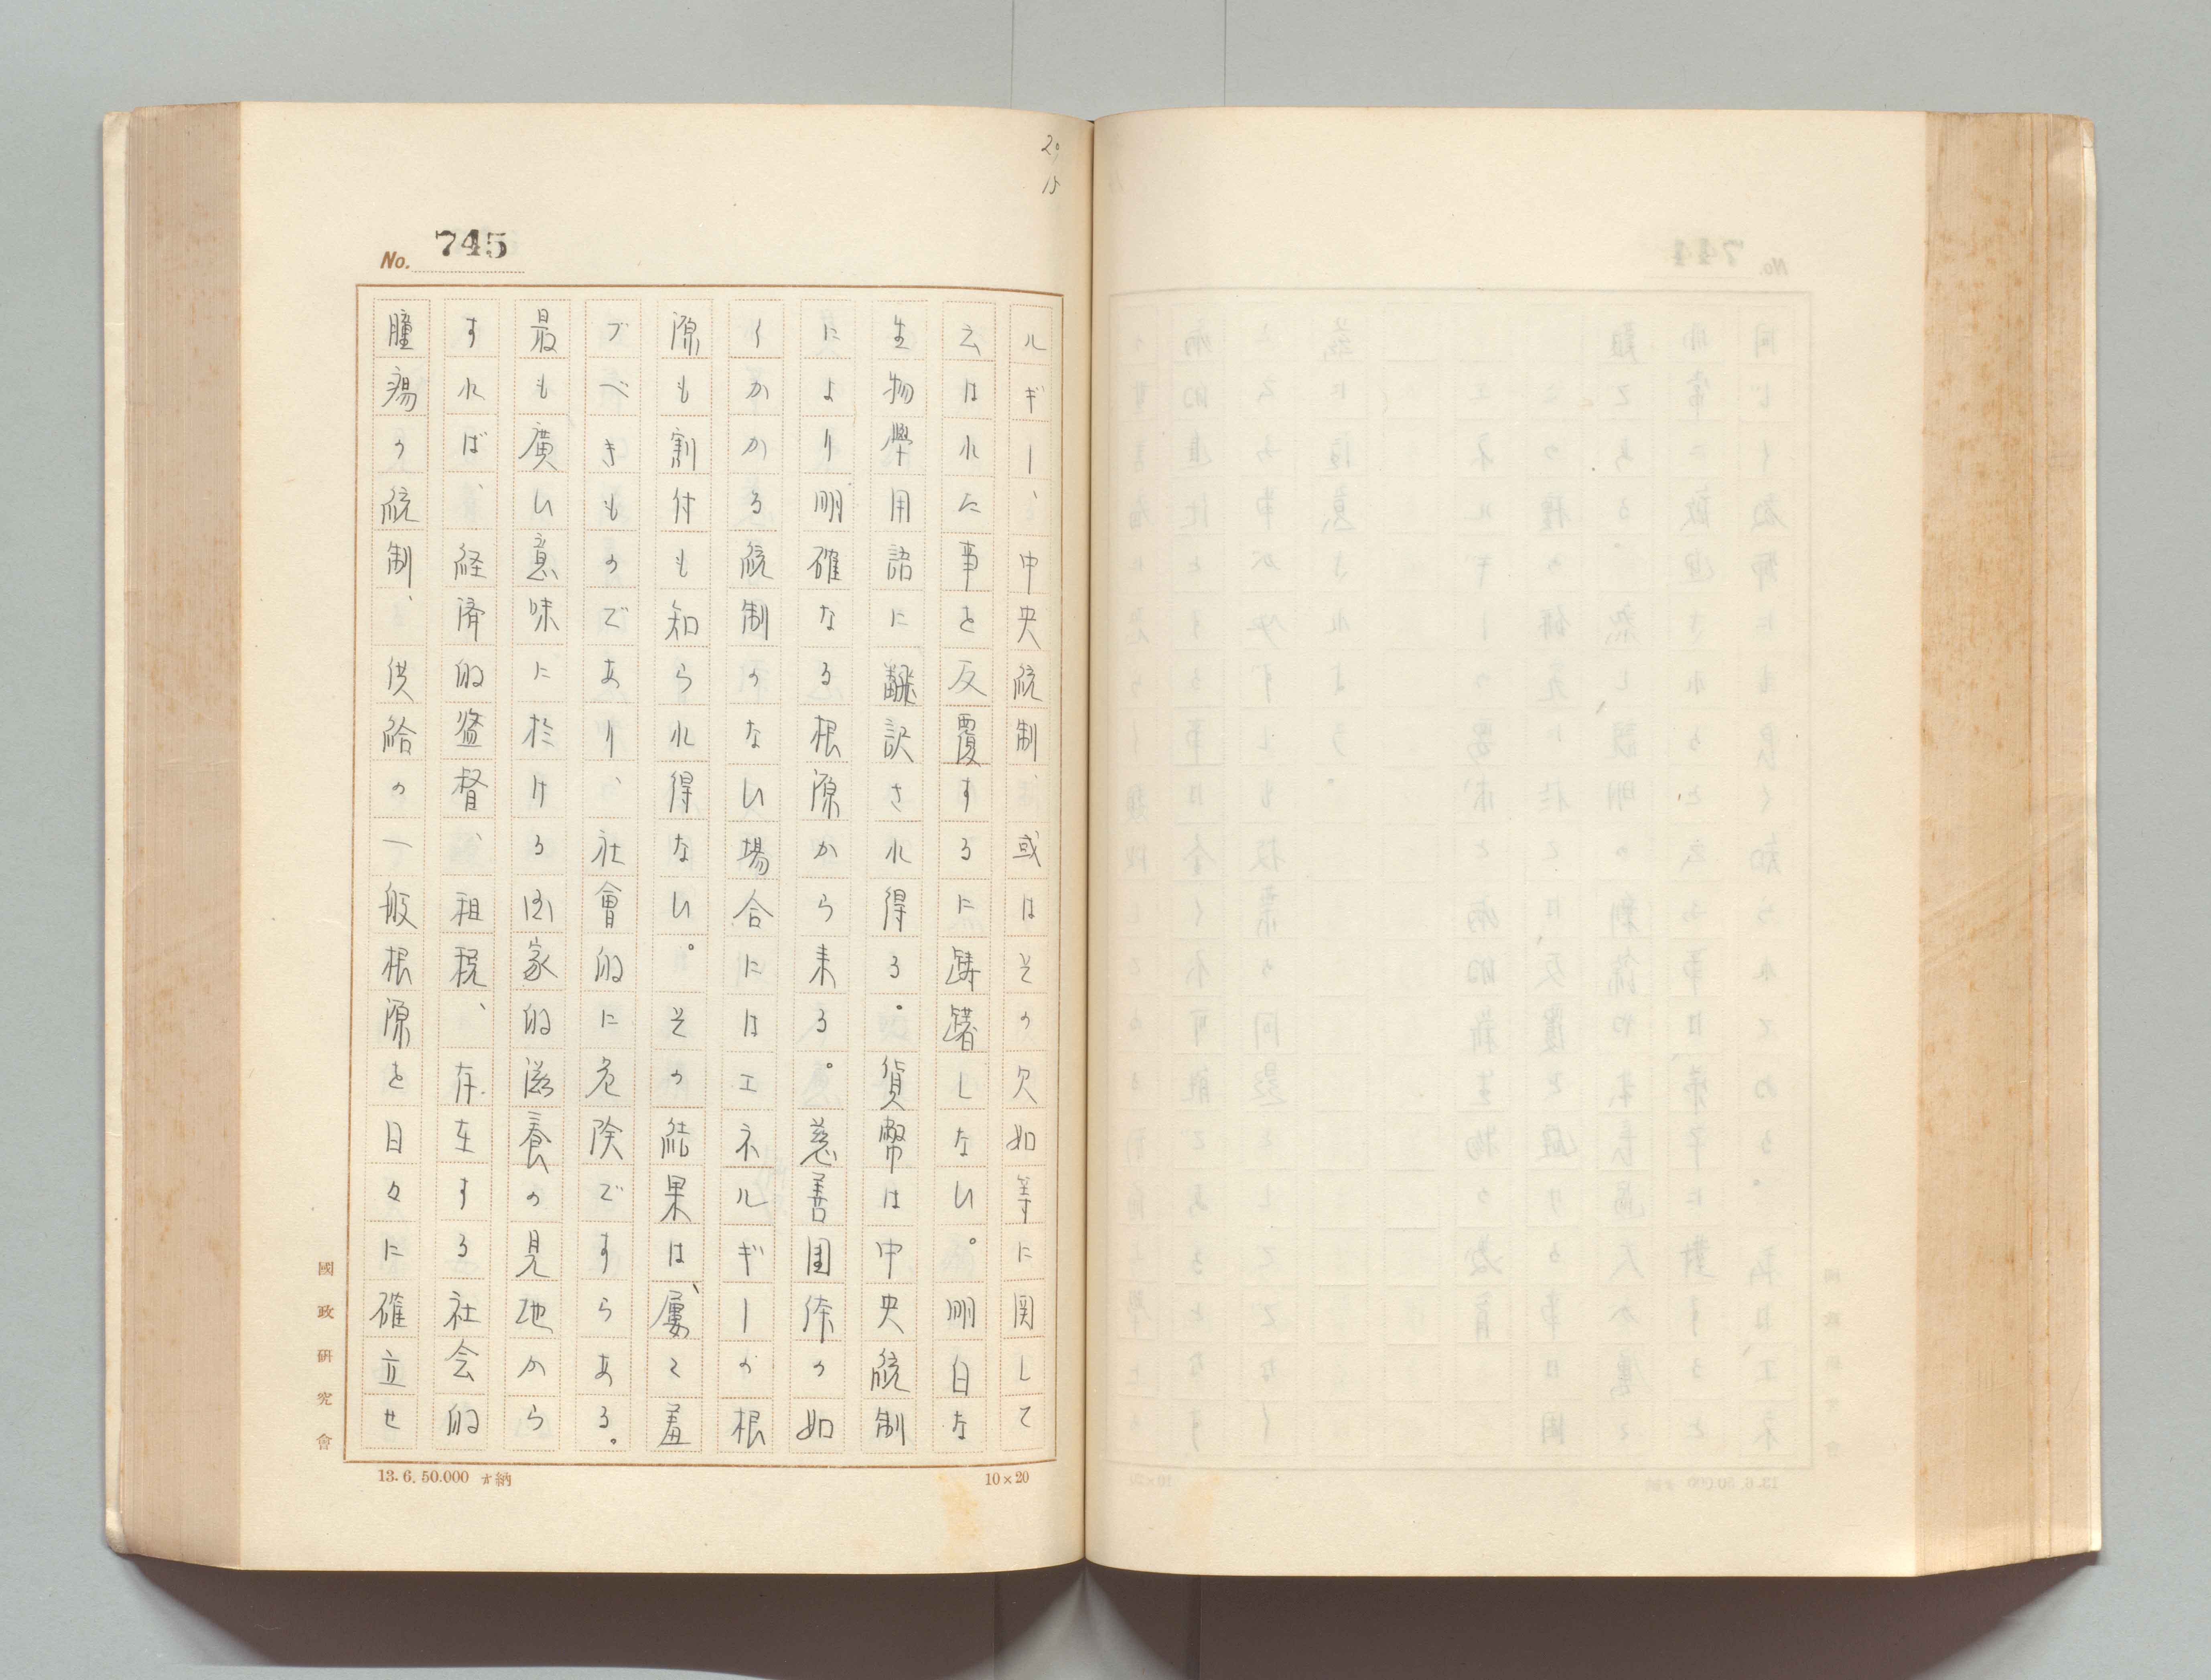 20
15
No. 745
ルギー、中央統制、或はその欠如等に関して
云はれた事を反覆するに躊躇しない。明白な
生物學用語に飜訳され得る。貨幣は中央統制
により明確なる根源から来る。慈善団体の如
くかかる統制のない場合にはエネルギーの根
源も割付も知られ得ない。その結果は、屢々羞
づべきものであり、社會的に危険ですらある。
最も廣い意味に於ける国家的滋養の見地から
すれば、経済的盗督、租税、存在する社会的
腫瘍の統制、供給の一般根源を日々に確立せ
國政研究會
13.6.50.000 納
10×20